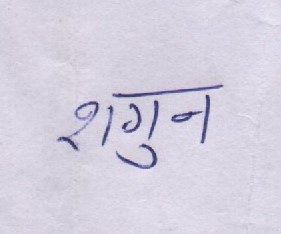 शगुन